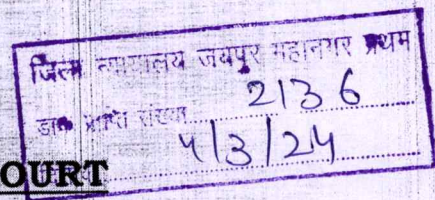 जिला न्यायालय जयपुर महानगर प्रथम
डाक प्राप्ति संख्या 2136
4/3/24
OURT